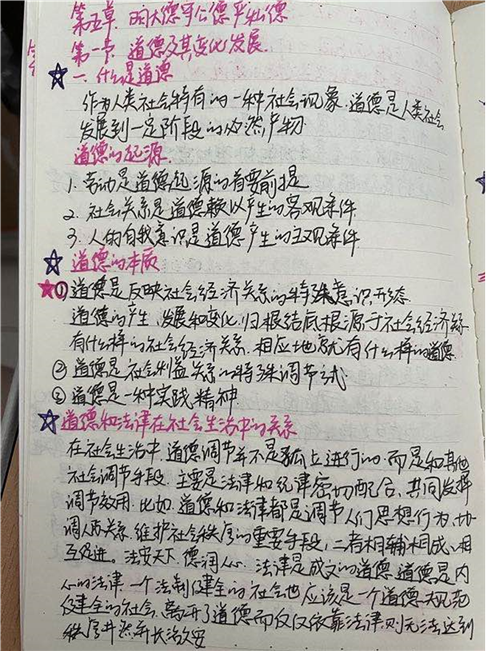 第五章 明大德守公德严私德
第一节 道德及其变化发展
一、什么是道德
作为人类社会特有的一种社会现象,道德是人类社会
发展到一定阶段的必然产物
道德的起源
1. 劳动是道德起源的首要前提
2. 社会关系是道德赖以产生的客观条件
3. 人的自我意识是道德产生的主观条件
道德的本质
① 道德是反映社会经济关系的特殊意识形态
道德的产生、发展和变化,归根结底根源于社会经济关系
有什么样的社会经济关系,相应地就有什么样的道德
② 道德是社会利益关系的特殊调节方式
③ 道德是一种实践精神
道德和法律在社会生活中的关系
在社会生活中,道德调节并不是孤立进行的,而是和其他
社会调节手段,主要是法律和纪律密切配合、共同发挥
调节效用.比如,道德和法律都是调节人们思想行为、协
调人际关系、维护社会秩序的重要手段,二者相辅相成、相
互促进。法安天下,德润人心.法律是成文的道德,道德是内
心的法律.一个法制健全的社会也应该是一个道德规范
健全的社会,离开了道德而仅仅依靠法律则无法达到
秩序井然和长治久安